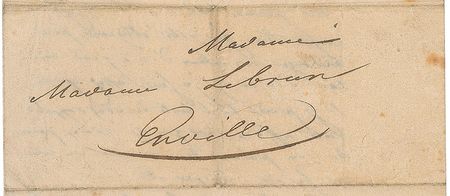 Madame
Madame Lebrun
Enville